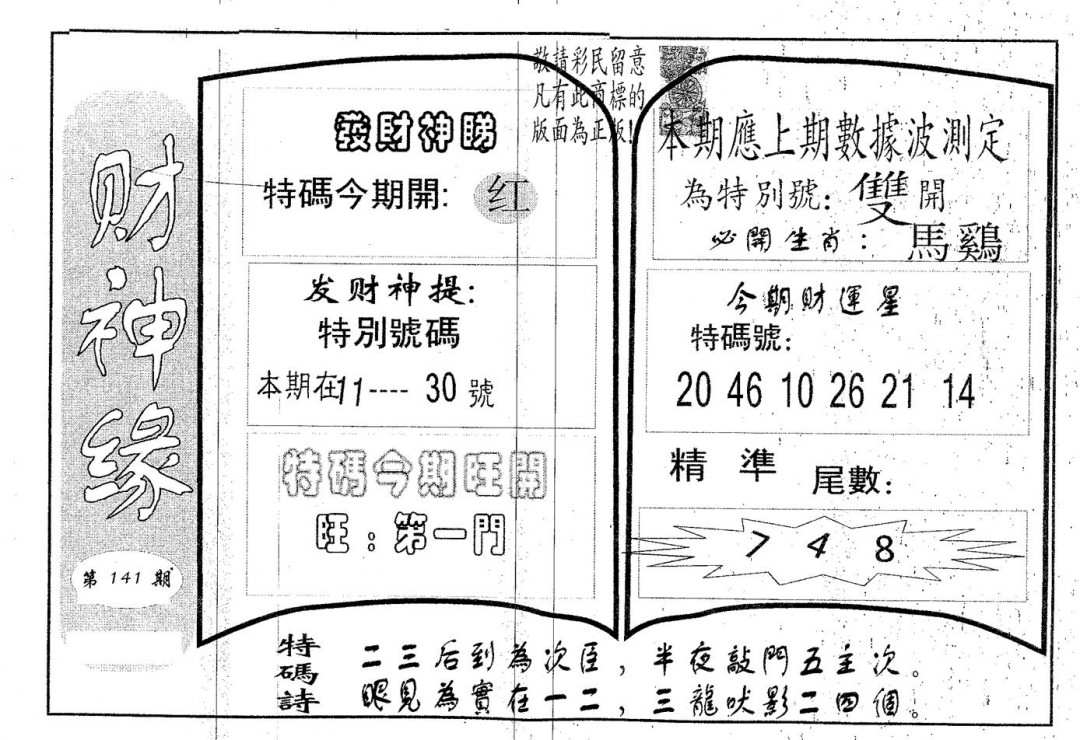 财神缘
第 141 期
敬請彩民留意
凡有此商標的
版面為正版!
發財神睇
特碼今期開: 红
发财神提:
特別號碼
本期在11----30號
特碼今期旺開
旺:第一門
本期應上期數據波測定
為特別號: 雙開
必開生肖: 馬鷄
今期財運星
特碼號:
20 46 10 26 21 14
精準 尾數:
7 4 8
特碼詩
二三后到為次臣,半夜敲門五主次。
眼見為實在一二,三龍吠影二四個。